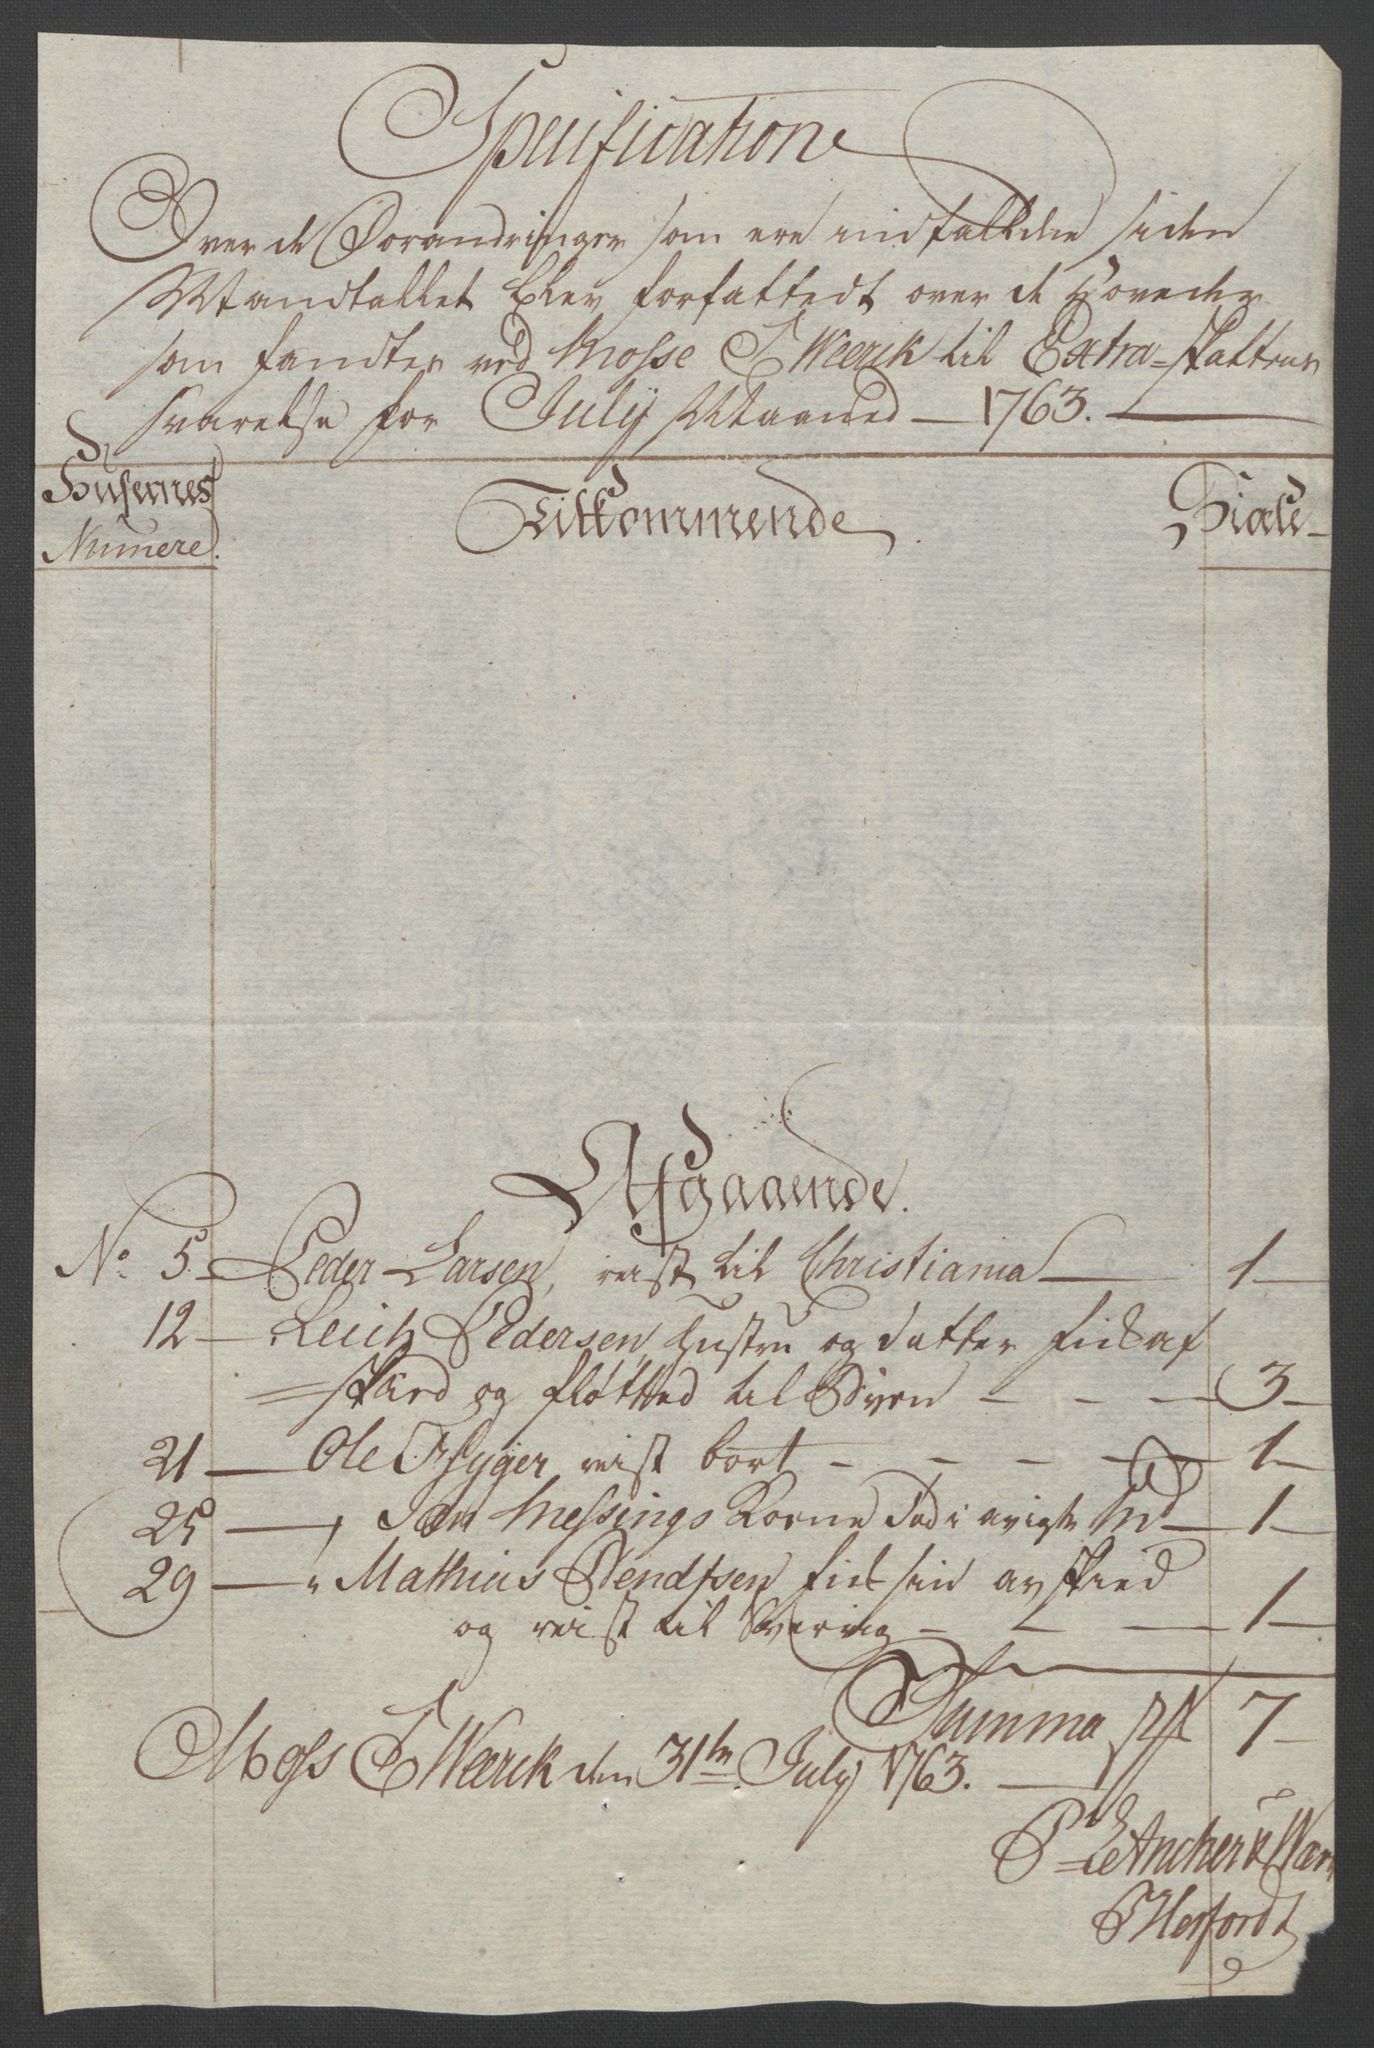 Specification
Over de Forandringer som ere indfaldne siden
Mandtallet blev forfattedt over de Hoveder
som fandtes ved Mosse J Wærck til Extra-skattens
svarelse for July Maaned — 1763.
Husernes Numere. Tilkommende. Siæle
Afgaaende.
No. 5 — Peder Larsen, reist til Christiania — 1 —
12 — Leich Pedersen, Hustru og datter fick af
=skeed og fløtted til Byen - - - 3 —
21 — Ole reist bort - - - - 1 —
25 — Messings Korne død i 1 —
29 — " Mathias Bendtsen fick sin avskied
og reist til Sverrig - - - 1 —
Summa 7 —
Moss J Wærck den 31te July 1763.
Ancher & Wærn
Herfordt